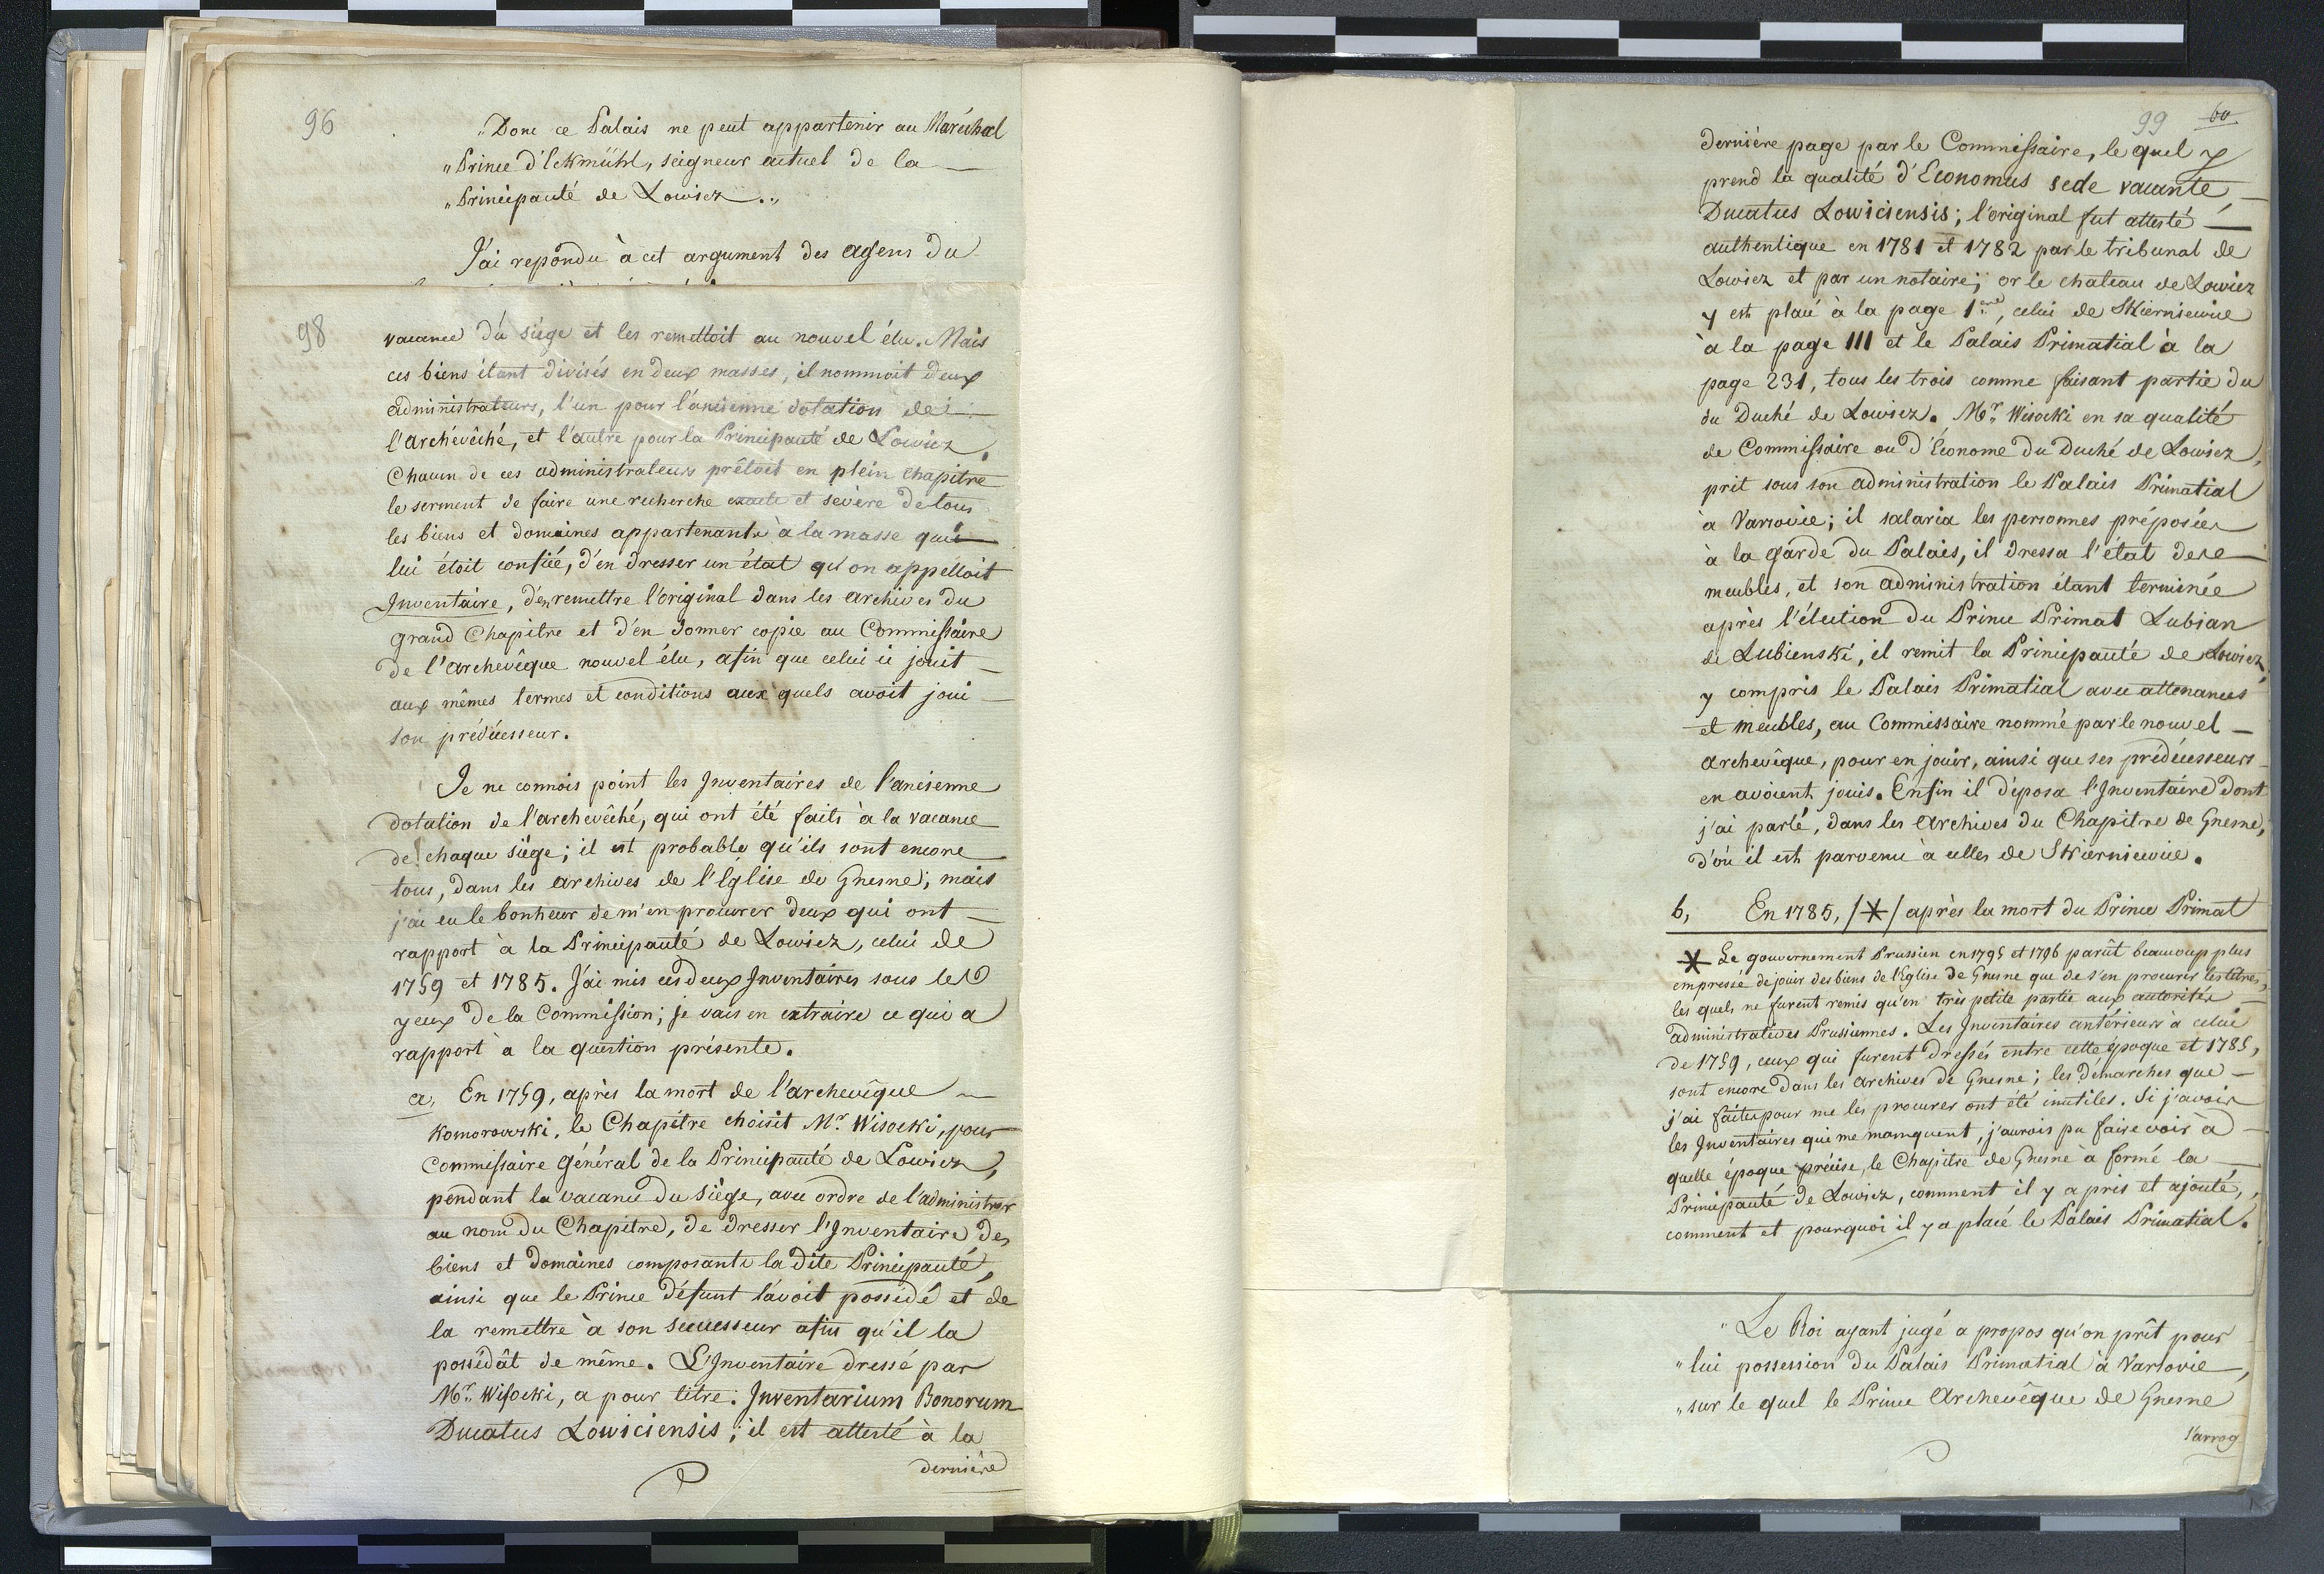 96
„Donc ce Palais ne peut appartenir au Maréchal
„Prince d'Eckmühl, seigneur actuel de la
„Principauté de Lowicz.„
J'ai repondu à cet argument des agens du
98
vacance du siége et les remettoit au nouvel élu. Mais
ces biens étant divisés en deux masses, il nommoit deux
administrateurs, l'un pour l'ancienne dotation de
l'archévêché, et l'autre pour la Principauté de Lowicz.
Chacun de ces administrateurs prêtoit en plein chapitre
le serment de faire une recherche exacte et sevère de tous
les biens et domaines appartenants à la masse qui
lui étoit confiée, d'en dresser un état qu'on appelloit
Inventaire, d'en remettre l'original dans les archives du
grand Chapitre et d'en donner copie au Commissaire
de l'archevêque nouvel élu, afin que celui ci jouit
aux mêmes termes et conditions aux quels avoit joui
son prédécesseur.
Je ne connois point les Inventaires de l'ancienne
dotation de l'archevêché, qui ont été faits à la vacance
de chaque siége; il est probable qu'ils sont encore
tous, dans les archives de l'Eglise de Gnesne; mais
j'ai eu le bonheur de m'en procurer deux qui ont
rapport à la Principauté de Lowicz, celui de
1759 et 1785. J'ai mis ces deux Inventaires sous les
yeux de la Commission; je vais en extraire ce qui a
rapport à la question présente.
a, En 1759, après la mort de l'archevêque
Komorowski, le Chapitre choisit Mr. Wisocki, pour
Commissaire général de la Principauté de Lowicz,
pendant la vacance du siége, avec ordre de l'administrer
au nom du Chapitre, de dresser l'Inventaire des
biens et domaines composants la dite Principauté,
ainsi que le Prince défunt l'avoit possédé et de
la remettre à son successeur afin qu'il la
possédât de même. L'Inventaire dressé par
Mr. Wisocki, a pour titre: Inventarium Bonorum
Ducatus Lowiciensis; il est attesté à la
dernière
99 60
dernière page par le Commissaire, le quel y
prend la qualité d'Economus sede vacante,
Ducatus Lowiciensis; l'original fut attesté
authentique en 1781 et 1782 par le tribunal de
Lowicz et par un notaire; or le chateau de Lowicz
y est placé à la page 1ere, celui de Skierniewice
à la page 111 et le Palais Primatial à la
page 231, tous les trois comme faisant partie du
du Duché de Lowicz. Mr. Wisocki en sa qualité
de Commissaire ou d'Économe du Duché de Lowicz,
prit sous son administration le Palais Primatial
à Varsovie; il salaria les personnes préposées
à la garde du Palais, il dressa l'état de ce
meubles, et son administration étant terminée
après l'élection du Prince Primat Lubian
de Lubienski, il remit la Principauté de Lowicz,
y compris le Palais Primatial avec attenances
et meubles, au Commissaire nommé par le nouvel
archevêque, pour en jouir, ainsi que ses prédécesseurs
en avoient jouis. Enfin il déposa l'Inventaire dont
j'ai parlé, dans les Archives du Chapitre de Gnesne,
d'où il est parvenu à celles de Skierniewice.
b, En 1785, /*/ après la mort du Prince Primat
* Le gouvernement Prussien en 1795 et 1796 parût beaucoup plus
empressé de jouir des biens de l'Eglise de Gnesne que de s'en procurer les titres,
les quels ne furent remis qu'en très petite partie aux autorités
administratives Prussiennes. Les Inventaires antérieurs à celui
de 1759, ceux qui furent dressés entre cette époque et 1785,
sont encore dans les archives de Gnesne; les demarches que
j'ai faites pour me les procurer ont été inutiles. Si j'avois
les Inventaires qui me manquent, j'aurois pu faire voir à
quelle époque précise, le Chapitre de Gnesne à formé la
Principauté de Lowicz, comment il y a pris et ajouté,
comment et pourquoi il y a placé le Palais Primatial.
"Le Roi ayant jugé a propos qu'on prît pour
"lui possession du Palais Primatial à Varsovie,
"sur le quel le Prince Archevêque de Gnesne
s'arrog